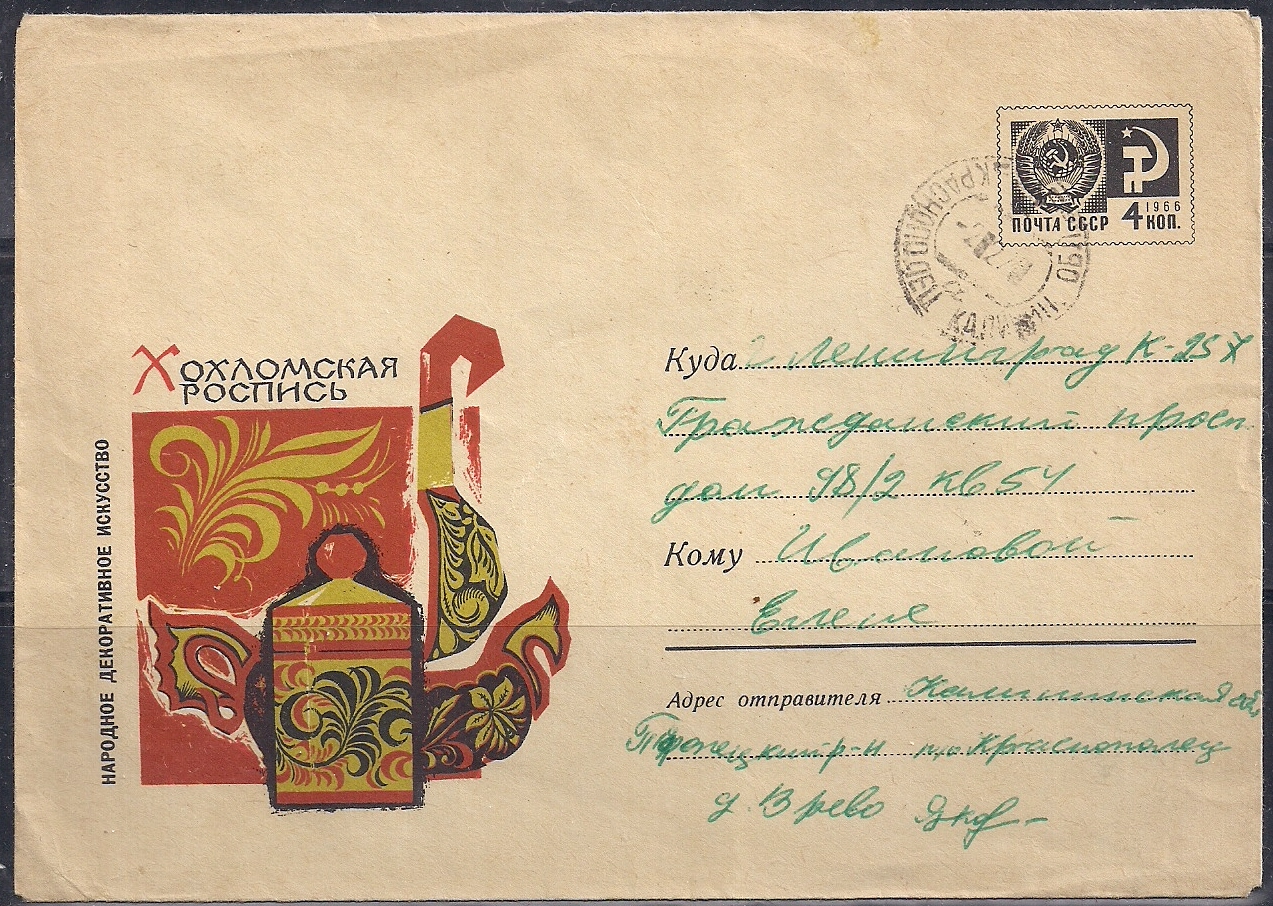 1966
ПОЧТА СССР 4 КОП.
КРАСНОПОЛЕЦ
КАЛИНИН. ОБЛ.
Хохломская
роспись
НАРОДНОЕ ДЕКОРАТИВНОЕ ИСКУССТВО
Куда г. Ленинград К-257
Гражданский просп.
дом 98/2 кв 54
Кому Ивановой
Елене
Адрес отправителя Калининская обл,
Торопецкий р-н п/о Краснополец
д. Врево